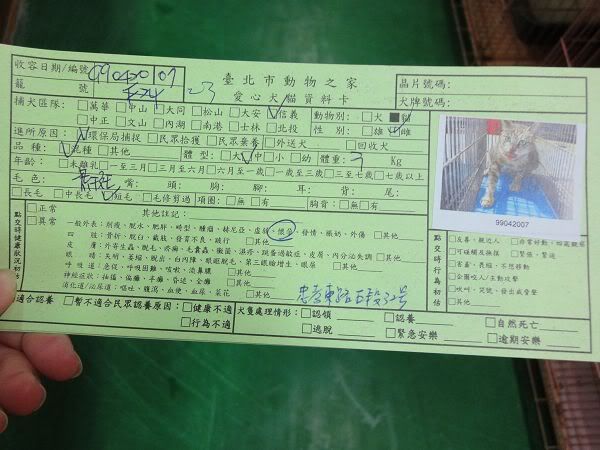 收容日期/編號 99042007
臺北市動物之家
愛心犬貓資料卡
晶片號碼:
犬牌號碼:
籠 號
捕犬區隊: □萬華 □中山 □大同 □松山 □大安 ☑信義 動物別: □犬 ■貓
□中正 □文山 □內湖 □南港 □士林 □北投 性 別: □雄 ☑雌
進所原因: ☑環保局捕捉 □民眾拾獲 □民眾棄養 □外送犬 □回收犬
品 種: ☑混種 □其他 體 型: □大 ☑中 □小 □幼 體重: 3 Kg
年齡: □未離乳 □一至三月 □三月至六月 □六月至一歲 □一歲至三歲 □三至七歲 □七歲以上
毛 色: 嘴: 頭: 胸: 腳: 耳: 背: 尾:
□長毛 □中長毛 ☑短毛 □毛修剪過 項圈: □無 □有 胸背: □無 □有
99042007
點交時健康狀況初步
□正常
□異常
其他註記:
一般外表: 削瘦、脫水、肥胖、畸型、腫瘤、赫尼亞、虛弱、懷孕、發情、脹奶、外傷 □其他
四 肢: 骨折、脫臼、截肢、發育不良、跛行 □其他
皮 膚: 外寄生蟲、脫毛
眼 睛: 失明、萎縮、脫出、白內障、眼瞼脫毛、第三眼瞼增生、眼屎 □其他
呼 吸 道: 急促、呼吸困難、咳嗽、流鼻膿 □其他
神經症狀: 抽搐、偏癱、半癱、昏迷、全癱 □其他
消化道/泌尿道: 嘔吐、腹瀉、血便、血尿、菜花 □其他
點交時行為初估
□友善、親近人
□可碰觸及撫摸 □緊張、緊迫
□害羞、畏縮、不想移動
□企圖咬人/主動攻擊
□吠叫、哭號、發出威脅聲
□其他
適合認養 □暫不適合民眾認養原因: □健康不適
□行為不適
犬隻處理情形: □認領 □認養 □自然死亡
□逃脫 □緊急安樂 □逾期安樂